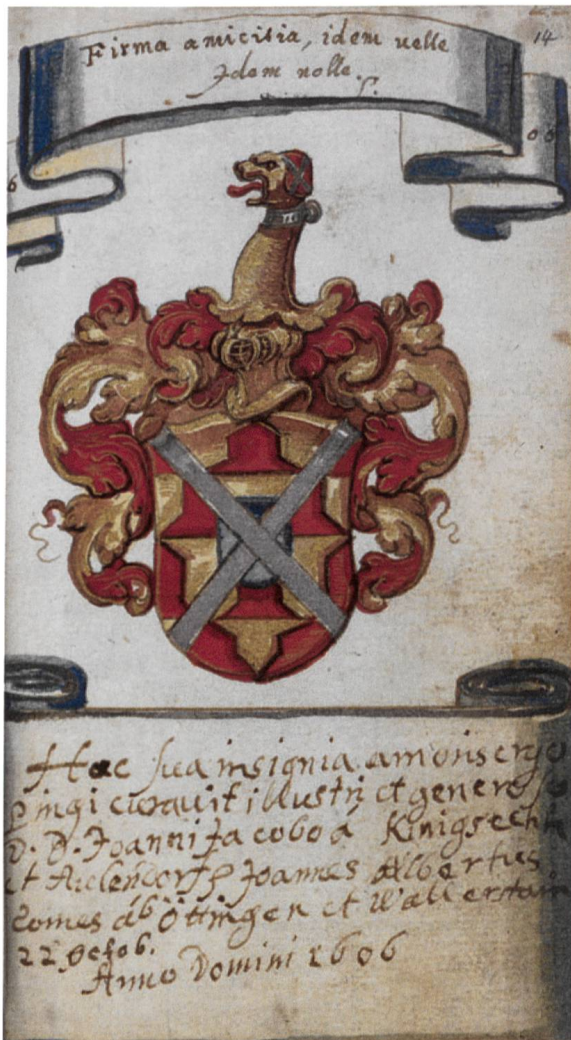 14
Firma amicitia, idem uelle
Idem nolle.
6
06
Hæc sua insignia amoris ergo
pingi curauit illustri et generoso
D. D. Joanni Jacobo á Kinigsechk
et Aulendorf Joannes Albertus
Comes ab Öttingen et Wallerstain
22 Octob.
Anno Domini 1606